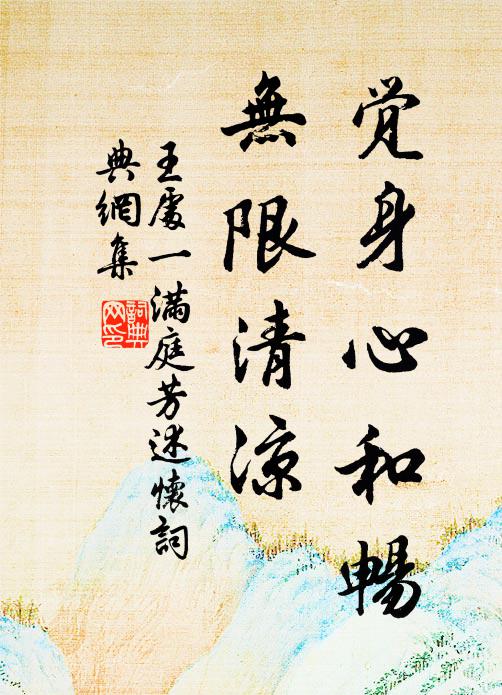 覚身心和暢
無限清涼
王處一滿庭芳述懷詞
典網集
詞典網印